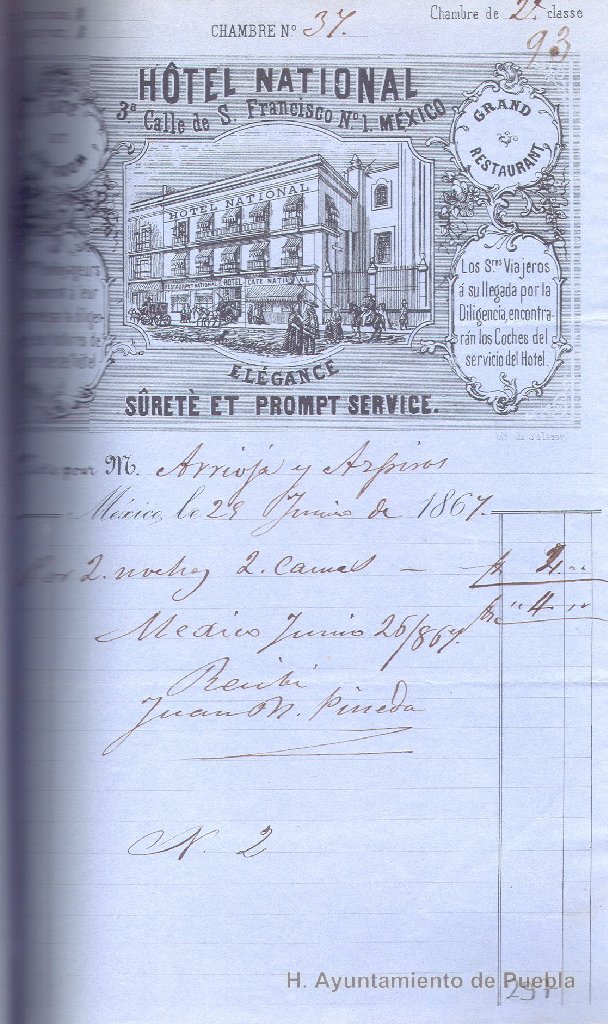 Chambre de 2ª classe
CHAMBRE Nº 37.
93
HÔTEL NATIONAL
3ª Calle de S. Francisco Nº 1. MÉXICO
GRAND
RESTAURANT
HOTEL NATIONAL
RESTAURANT NATIONAL HOTEL CAFE NATIONAL
Los Sres Viajeros
á su llegada por la
Diligencia, encontra-
rán los Coches del
servicio del Hotel.
ELÉGANCE
SÛRETÈ ET PROMPT SERVICE.
pour M. Arrioja y Azpiros
México, le 25 Junio de 1867.
Por 2. noches 2. camas — $ 4 ..
$ " 4 ..
Mexico Junio 26/867.
Recibi
Juan N. Pineda
N. 2
H. Ayuntamiento de Puebla